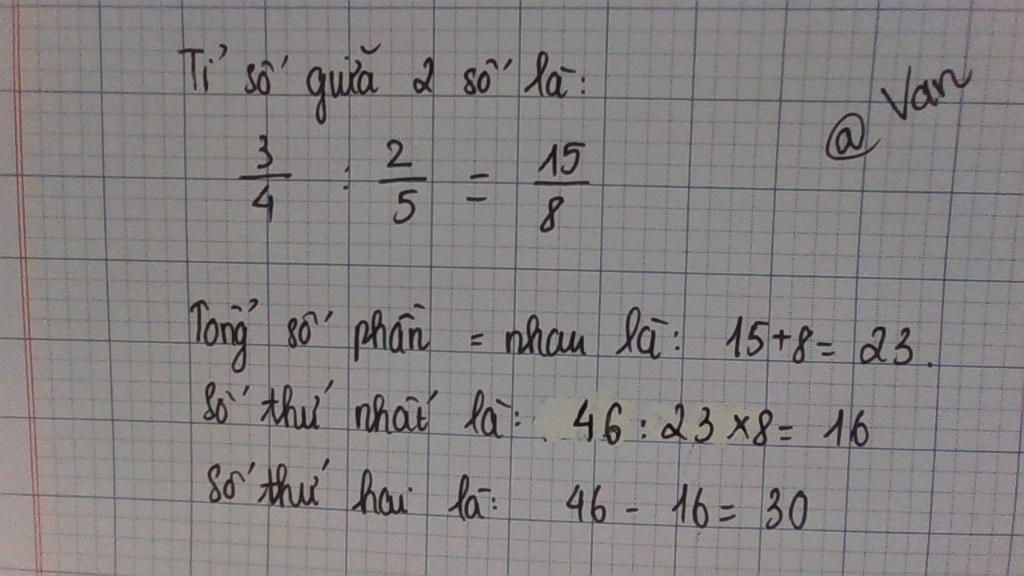 Tỉ số guiữa 2 số là:
@ Van
3/4 : 2/5 = 15/8
Tổng số phần = nhau là: 15+8= 23.
Số thứ nhất là: 46 : 23 x8= 16
Số thứ hai là: 46 - 16= 30